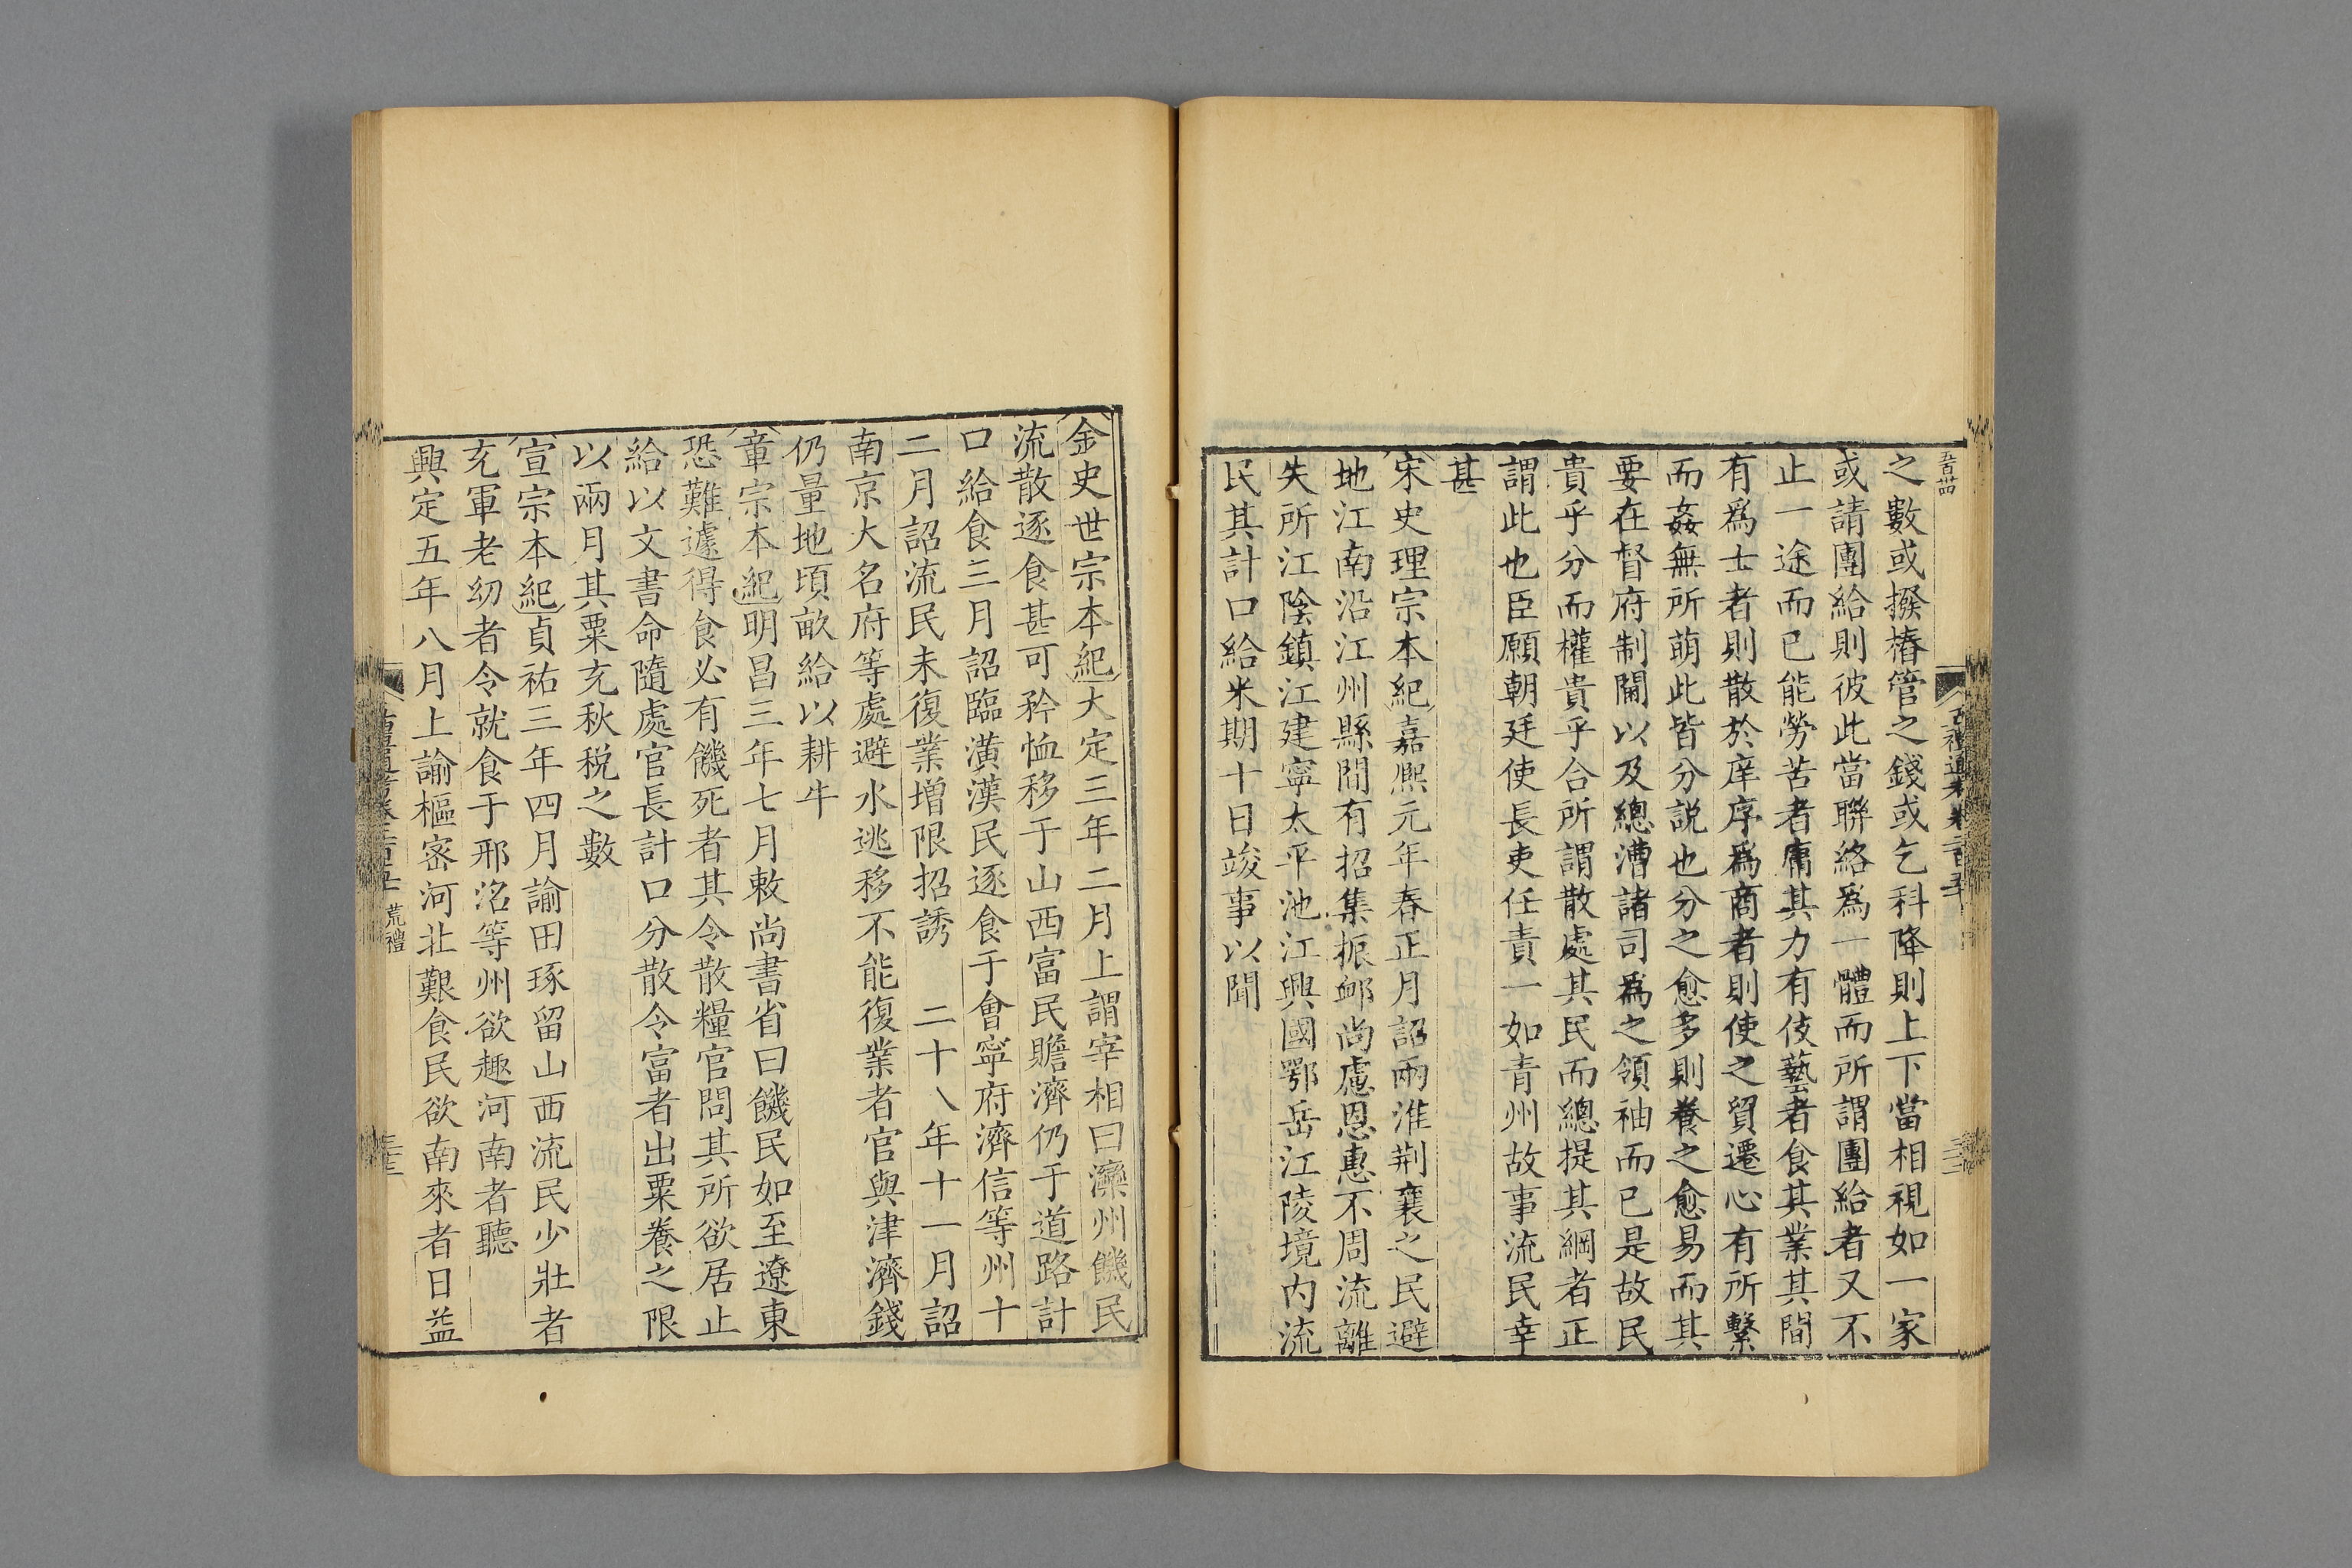 之數或撥樁管之錢或乞科降則上下當相視如一家
或請團給則彼此當聯絡爲一體而所謂團給者又不
止一途而已能勞苦者庸其力有伎藝者食其業其間
有爲士者則散於庠序爲商者則使之貿遷心有所繫
而姦無所萌此皆分說也分之愈多則養之愈易而其
要在督府制閫以及總漕諸司爲之領袖而已是故民
貴乎分而權貴乎合所謂散處其民而總提其綱者正
謂此也臣願朝廷使長吏任責一如青州故事流民幸
甚
宋史理宗本紀嘉熙元年春正月詔兩淮荆襄之民避
地江南沿江州縣間有招集振卹尚慮恩惠不周流離
失所江陰鎮江建寧太平池江興國鄂岳江陵境内流
民其計口給米期十日竣事以聞
金史世宗本紀大定三年二月上謂宰相曰灤州饑民
流散逐食甚可矜恤移于山西富民贍濟仍于道路計
口給食三月詔臨潢漢民逐食于會寧府濟信等州十
二月詔流民未復業增限招誘 二十八年十一月詔
南京大名府等處避水逃移不能復業者官與津濟錢
仍量地頃畝給以耕牛
章宗本紀明昌三年七月敕尚書省曰饑民如至遼東
恐難遽得食必有饑死者其令散糧官問其所欲居止
給以文書命隨處官長計口分散令富者出粟養之限
以兩月其粟充秋税之數
宣宗本紀貞祐三年四月諭田琢留山西流民少壯者
充軍老幼者令就食于邢洺等州欲趣河南者聽
興定五年八月上諭樞密河北艱食民欲南來者日益
荒禮